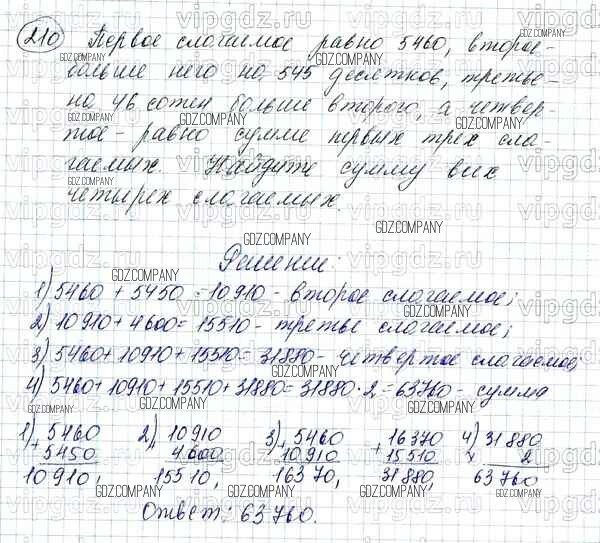 210 Первое слагаемое равно 5460, второе -
больше него на 545 десятков, третье -
на 46 сотен больше второго, а четвер-
тое - равно сумме первых трех сла-
гаемых. Найдите сумму всех
четырех слагаемых.
Решение:
1) 5460 + 5450 = 10910 - второе слагаемое;
2) 10910 + 4600 = 15510 - третье слагаемое;
3) 5460 + 10910 + 15510 = 31880 - четвертое слагаемое;
4) 5460 + 10910 + 15510 + 31880 = 31880 · 2 = 63760 - сумма
1) 5460 2) 10910 3) 5460 16370 4) 31880
+ 5450 + 4600 + 10910 + 15510 x 2
10910, 15510, 16370, 31880, 63760
Ответ: 63760.